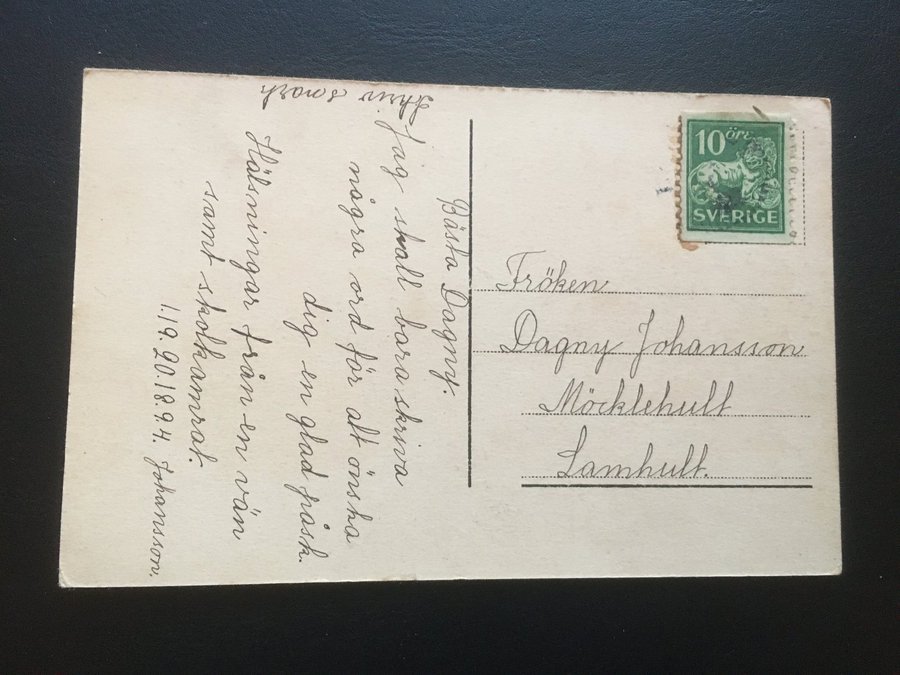 Bästa Dagny.
Jag skall bara skriva
några ord för att önska
dig en glad påsk.
Hälsningar från en vän
samt skolkamrat.
1.19.20.18.9.4. Johansson.
10 ÖRE
SVERIGE
Fröken
Dagny Johansson
Möcklehult
Lamhult.